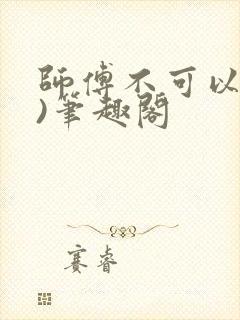 師傅不可以
)筆趣閣
賽睿